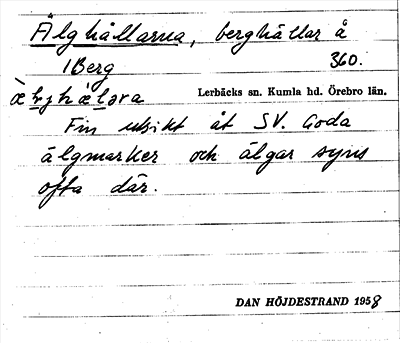 Älghällarna, berghällar å
1Berg 360.
Lerbäcks sn. Kumla hd. Örebro län.
Fin utsikt åt SV. Goda
älgmarker och älgar syns
ofta där.
DAN HÖJDESTRAND 1958